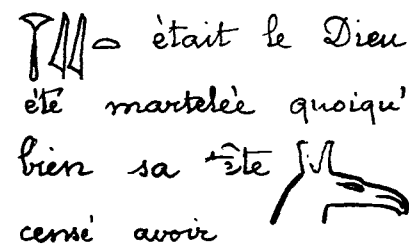 était le Dieu
été martelée quoiqu'
bien sa tête
censé avoir